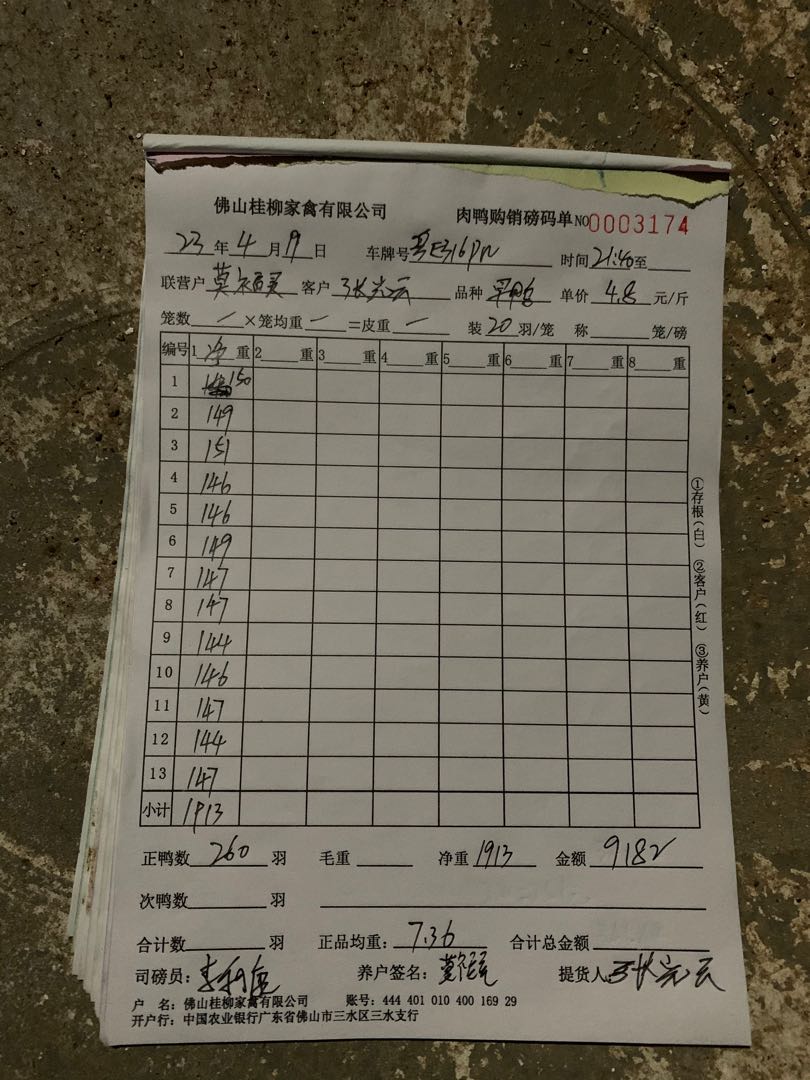 佛山桂柳家禽有限公司 肉鸭购销磅码单 NO 0003174
23 年 4 月 9 日 车牌号 粤E316 时间 21:40 至
联营户 莫 客户 张 云 品种 单价 4.8 元/斤
笼数 / ×笼均重 一 =皮重 一 装 20 羽/笼 称 笼/磅
编号 1 净 重 2 重 3 重 4 重 5 重 6 重 7 重 8 重
1 150
2 149
3 151
4 146
5 146
6 149
7 147
8 147
9 144
10 146
11 147
12 144
13 147
小计 1913
正鸭数 260 羽 毛重 净重 1913 金额 9182
次鸭数 羽
合计数 羽 正品均重: 7.36 合计总金额
司磅员: 李 养户签名: 莫 提货人 张 云
户 名: 佛山桂柳家禽有限公司 账号: 444 401 010 400 169 29
开户行: 中国农业银行广东省佛山市三水区三水支行
①存根(白) ②客户(红) ③养户(黄)